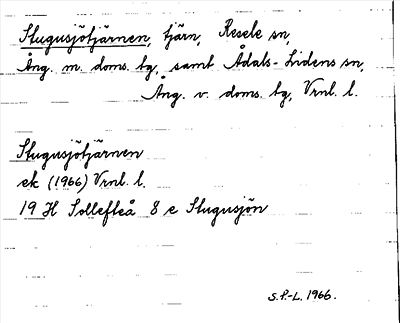 Stugusjötjärnen, tjärn, Resele sn,
Ång. m. doms. tg, samt Ådals-Lidens sn,
Ång. v. doms. tg, Vrnl. l.
Stugusjötjärnen
ek (1966) Vrnl. l.
19 H Sollefteå 8 e Stugusjön
S.P.-L. 1966.